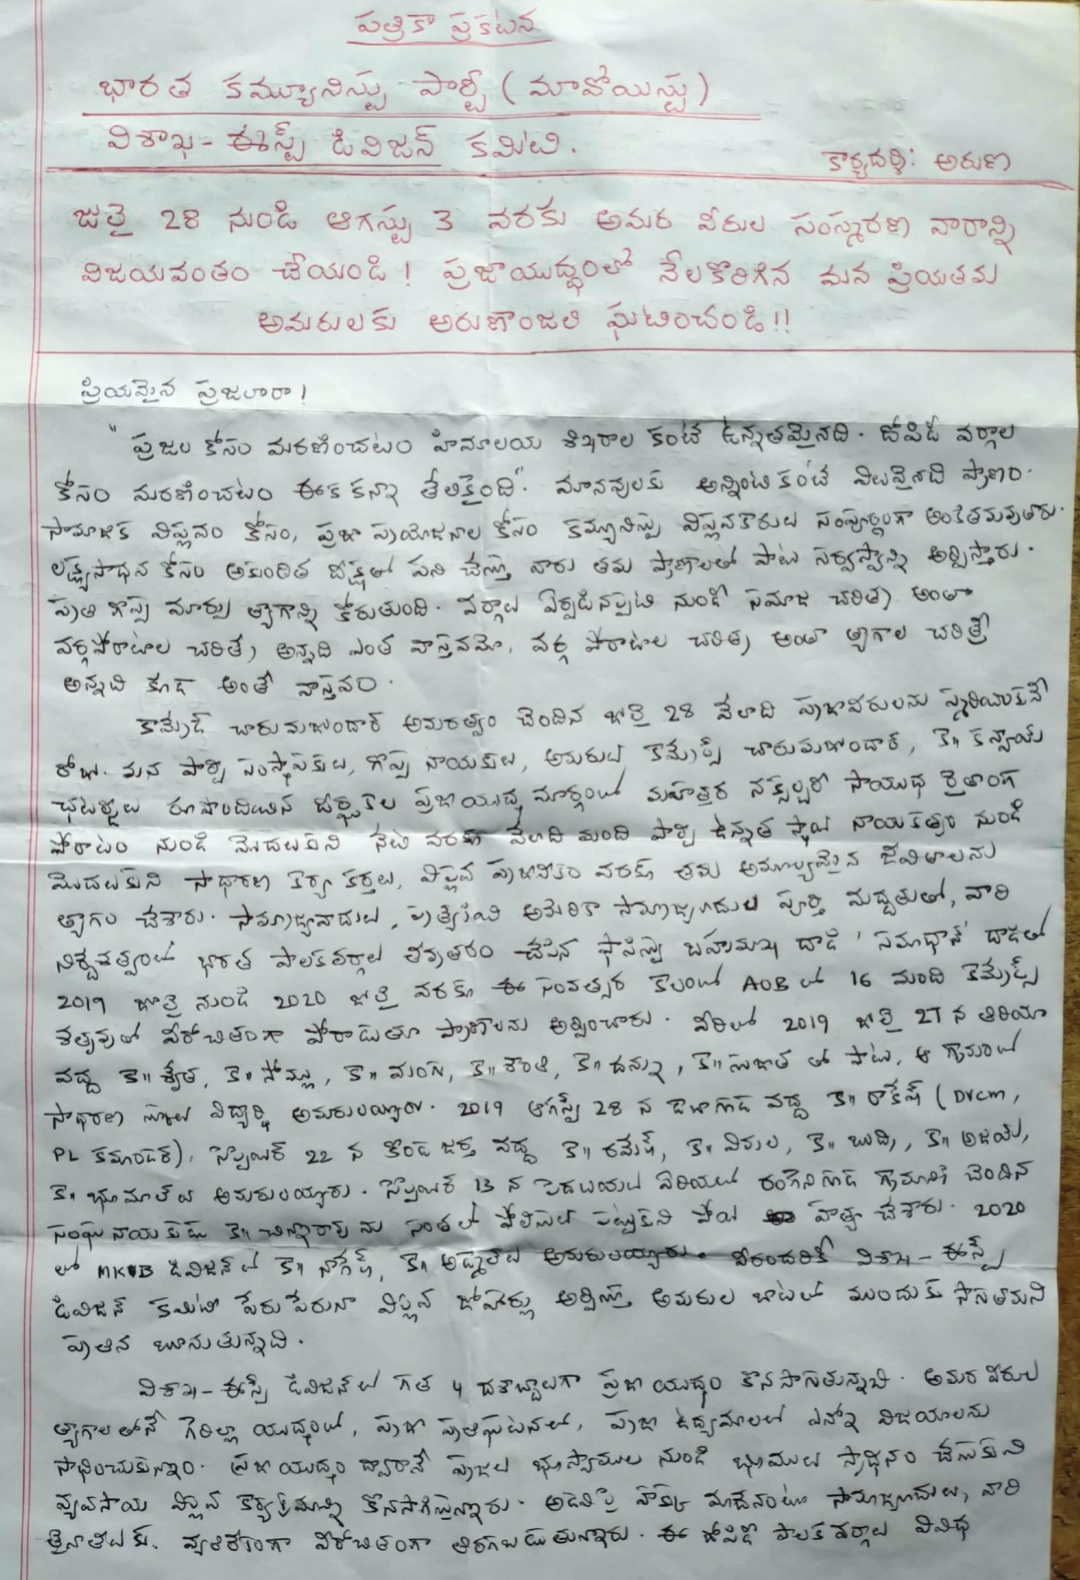 పత్రికా ప్రకటన
భారత కమ్యూనిస్టు పార్టీ (మావోయిస్టు)
విశాఖ - ఈస్ట్ డివిజన్ కమిటి.
కార్యదర్శి: అరుణ
జులై 28 నుండి ఆగస్టు 3 వరకు అమర వీరుల సంస్మరణ వారాన్ని
విజయవంతం చేయండి! ప్రజాయుద్ధంలో నేలకొరిగిన మన ప్రియతమ
అమరులకు అరుణాంజలి ఘటించండి!!
ప్రియమైన ప్రజలారా!
"ప్రజల కోసం మరణించటం హిమాలయ శిఖరాల కంటే ఉన్నతమైనది. దోపిడీ వర్గాల
కోసం మరణించటం ఈక కన్నా తేలికైంది". మానవులకు అన్నింటికంటే విలువైనది ప్రాణం.
సామాజిక విప్లవం కోసం, ప్రజా ప్రయోజనాల కోసం కమ్యూనిస్టు విప్లవకారులు సంపూర్ణంగా అంకితమవుతారు.
లక్ష్యసాధన కోసం అకుంఠిత దీక్షతో పని చేస్తూ వారు తమ ప్రాణాలతో పాటు సర్వస్వాన్ని అర్పిస్తారు.
ప్రతి గొప్ప మార్పు త్యాగాన్ని కోరుతుంది. వర్గాలు ఏర్పడినప్పటి నుండి సమాజ చరిత్ర అంతా
వర్గపోరాటాల చరిత్రే అన్నది ఎంత వాస్తవమో, వర్గ పోరాటాల చరిత్ర అంతా త్యాగాల చరిత్రే
అన్నది కూడ అంతే వాస్తవం.
కామ్రేడ్ చారుమజుందార్ అమరత్వం చెందిన జులై 28 వేలాది ప్రజావీరులను స్మరించుకునే
రోజు. మన పార్టీ సంస్థాపకులు, గొప్ప నాయకులు, అమరులు కామ్రేడ్స్ చారుమజుందార్, కా॥ కన్హాయ్
ఛటర్జీలు రూపొందించిన దీర్ఘకాల ప్రజాయుద్ధ మార్గంలో మహత్తర నక్సల్బరీ సాయుధ రైతాంగ
పోరాటం నుండి మొదలుకుని నేటి వరకు వేలాది మంది పార్టీ ఉన్నత స్థాయి నాయకత్వం నుండి
మొదలుకుని సాధారణ కార్య కర్తలు, విప్లవ ప్రజానీకం వరకు తమ అమూల్యమైన జీవితాలను
త్యాగం చేశారు. సామ్రాజ్యవాదులు, ప్రత్యేకించి అమెరికా సామ్రాజ్యవాదుల పూర్తి మద్దతుతో, వారి
భారత పాలకవర్గాలు తీవ్రతరం చేసిన ఫాసిస్టు బహుముఖ దాడి 'సమాధాన్' దాడితో
2019 జులై నుండి 2020 జులై వరకు ఈ సంవత్సర కాలంలో AOB లో 16 మంది కామ్రేడ్స్
శత్రువుతో వీరోచితంగా పోరాడుతూ ప్రాణాలను అర్పించారు. వీరిలో 2019 జులై 27 న
వద్ద కా॥ శ్వేత, కా॥ కా॥ కా॥ కా॥ కా॥ సుజాత లతో పాటు, ఆ గ్రామంలో
సాధారణ స్కూలు విద్యార్థి అమరులయ్యారు. 2019 ఆగస్ట్ 28 న వద్ద కా॥ రాకేష్ (DVCM,
PL కమాండర్), సెప్టెంబర్ 22 న వద్ద కా॥ రమేష్, కా॥ విమల, కా॥ బుద్రి, కా॥ అజయ్,
కా॥ అమరులయ్యారు. సెప్టెంబర్ 13 న పెదబయలు ఏరియాలో గ్రామానికి చెందిన
సంఘ నాయకుడు కా॥ ను సంతలో పోలీసులు పట్టుకుని పోయి హత్య చేశారు. 2020
లో MKVB డివిజన్ లో కా॥ నాగేష్, కా॥ అమరులయ్యారు. వీరందరికీ విశాఖ - ఈస్ట్
డివిజన్ కమిటి పేరుపేరునా విప్లవ జోహార్లు అర్పిస్తూ అమరుల బాటలో ముందుకు సాగుతామని
ప్రతిన బూనుతున్నది.
విశాఖ - ఈస్ట్ డివిజన్ లో గత 4 దశాబ్దాలుగా ప్రజా యుద్ధం కొనసాగుతున్నది. అమర వీరుల
త్యాగాలతోనే గెరిల్లా యుద్ధంలో, ప్రజా ప్రతిఘటనలో, ప్రజా ఉద్యమాలలో ఎన్నో విజయాలను
సాధించుకున్నాం. ప్రజా యుద్ధం ద్వారానే ప్రజలు భూస్వాముల నుండి భూములు స్వాధీనం చేసుకుని
వ్యవసాయ విప్లవ కార్యక్రమాన్ని కొనసాగిస్తున్నారు. అడవిపై హక్కు మాదేనంటూ సామ్రాజ్యవాదులు, వారి
వ్యతిరేకంగా వీరోచితంగా తిరగబడుతున్నారు. ఈ దోపిడీ పాలక వర్గాలు వివిధ